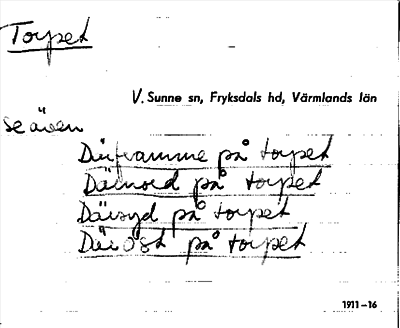 Torpet
V. Sunne sn, Fryksdals hd, Värmlands län
se även
Därframme på torpet
Därnord på torpet
Därsyd på torpet
Däröst på torpet
1911-16